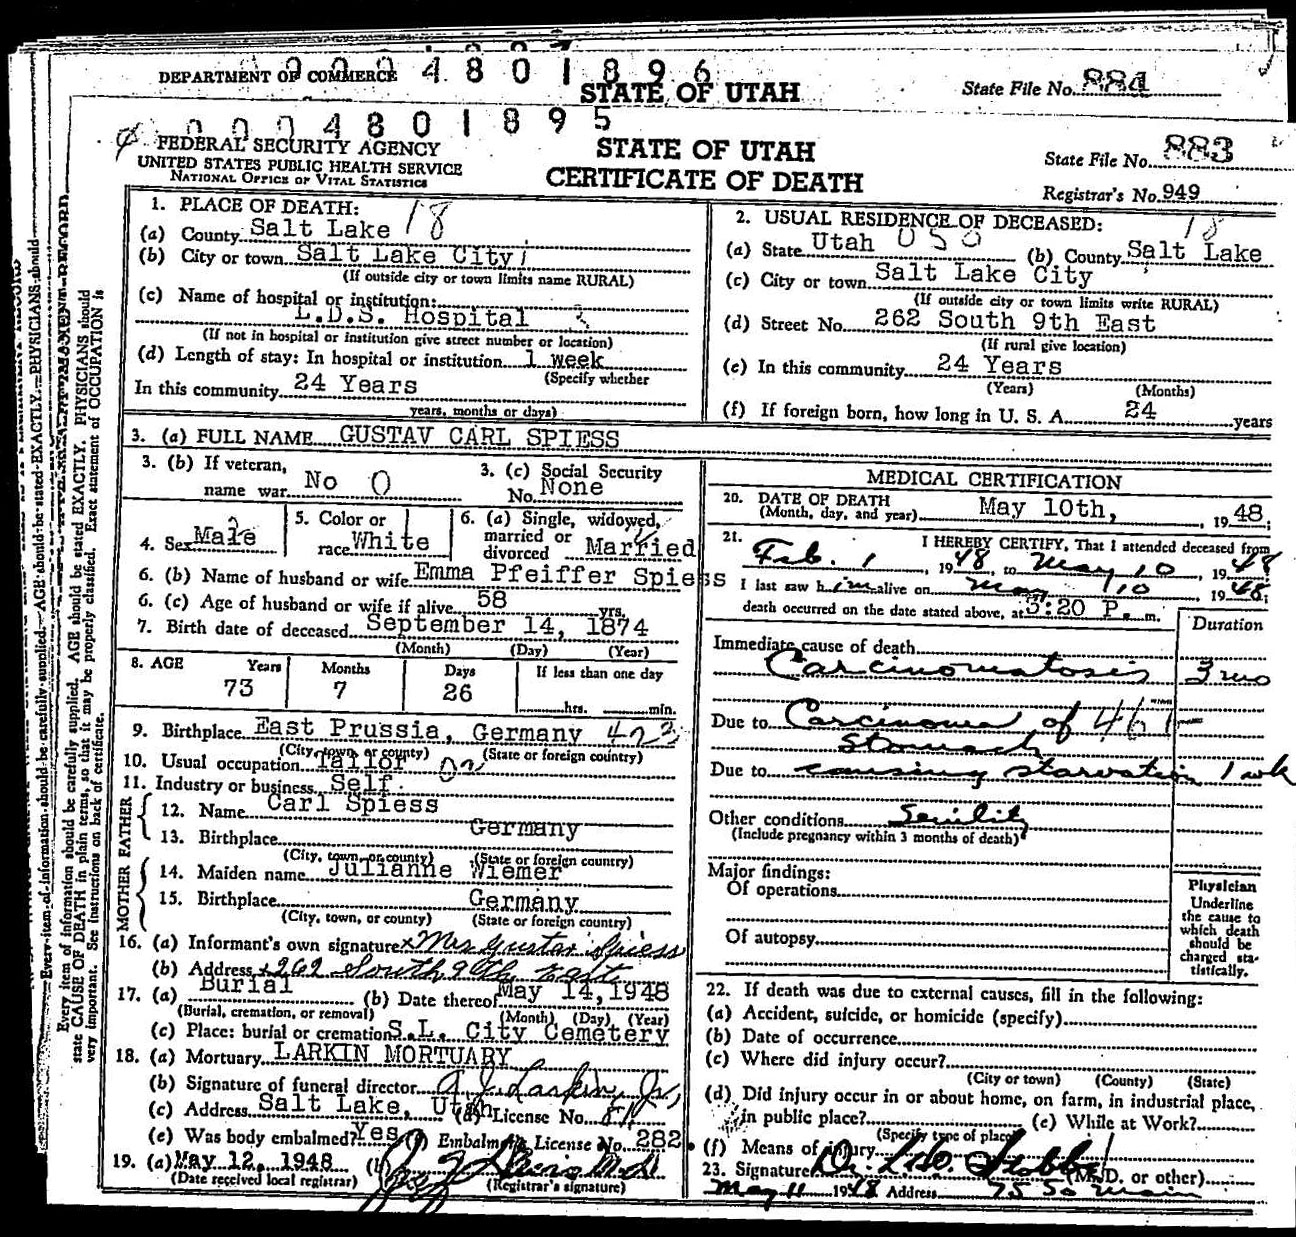 0004801896
DEPARTMENT OF COMMERCE
STATE OF UTAH
State File No. 884
0004801895
FEDERAL SECURITY AGENCY
UNITED STATES PUBLIC HEALTH SERVICE
NATIONAL OFFICE OF VITAL STATISTICS
STATE OF UTAH
CERTIFICATE OF DEATH
State File No. 883
Registrar's No. 949
Every item of information should be carefully supplied. AGE should be stated EXACTLY. PHYSICIANS should
state CAUSE OF DEATH in plain terms, so that it may be properly classified. Exact statement of OCCUPATION is
very important. See instructions on back of certificate.
1. PLACE OF DEATH: 18
(a) County Salt Lake
(b) City or town Salt Lake City
(If outside city or town limits name RURAL)
(c) Name of hospital or institution:
L.D.S. Hospital
(If not in hospital or institution give street number or location)
(d) Length of stay: In hospital or institution 1 week
(Specify whether
In this community 24 Years
years, months or days)
2. USUAL RESIDENCE OF DECEASED: 18
(a) State Utah 050 (b) County Salt Lake
(c) City or town Salt Lake City
(If outside city or town limits write RURAL)
(d) Street No. 262 South 9th East
(If rural give location)
(e) In this community 24 Years
(Years) (Months)
(f) If foreign born, how long in U. S. A. 24 years
3. (a) FULL NAME GUSTAV CARL SPIESS
3. (b) If veteran, name war No 0
3. (c) Social Security No. None
4. Sex Male
5. Color or race White
6. (a) Single, widowed, married or divorced Married
6. (b) Name of husband or wife Emma Pfeiffer Spiess
6. (c) Age of husband or wife if alive 58 yrs.
7. Birth date of deceased September 14, 1874
(Month) (Day) (Year)
8. AGE Years Months Days If less than one day
73 7 26 hrs. min.
9. Birthplace East Prussia, Germany 423
(City, town, or county) (State or foreign country)
10. Usual occupation Tailor
11. Industry or business Self
FATHER
12. Name Carl Spiess
13. Birthplace Germany
(City, town, or county) (State or foreign country)
MOTHER
14. Maiden name Julianne Wiemer
15. Birthplace Germany
(City, town, or county) (State or foreign country)
16. (a) Informant's own signature x Mrs Gustav Spiess
(b) Address x 262 South 9th East
17. (a) Burial (b) Date thereof May 14, 1948
(Burial, cremation, or removal) (Month) (Day) (Year)
(c) Place: burial or cremation S.L. City Cemetery
18. (a) Mortuary LARKIN MORTUARY
(b) Signature of funeral director A. J. Larkin, Jr.
(c) Address Salt Lake, Utah (d) License No. 81
(e) Was body embalmed? Yes (f) Embalmer's License No. 282
19. (a) May 12, 1948 (b)
(Date received local registrar) (Registrar's signature)
MEDICAL CERTIFICATION
20. DATE OF DEATH
(Month, day, and year) May 10th, 1948;
21. I HEREBY CERTIFY, That I attended deceased from
Feb. 1, 1948, to May 10, 1948
I last saw him alive on May 10 1948;
death occurred on the date stated above, at 3:20 P. m.
Duration
Immediate cause of death
Carcinomatosis 3 mo
Due to Carcinoma of 461
Stomach
Due to causing starvation 1 wk
Other conditions Senility
(Include pregnancy within 3 months of death)
Major findings:
Of operations
Of autopsy
Physician
Underline
the cause to
which death
should be
charged sta-
tistically.
22. If death was due to external causes, fill in the following:
(a) Accident, suicide, or homicide (specify)
(b) Date of occurrence
(c) Where did injury occur?
(City or town) (County) (State)
(d) Did injury occur in or about home, on farm, in industrial place,
in public place? (e) While at Work?
(Specify type of place)
(f) Means of injury
23. Signature Dr. (M. D. or other)
May 11 1948 Address 75 So Main